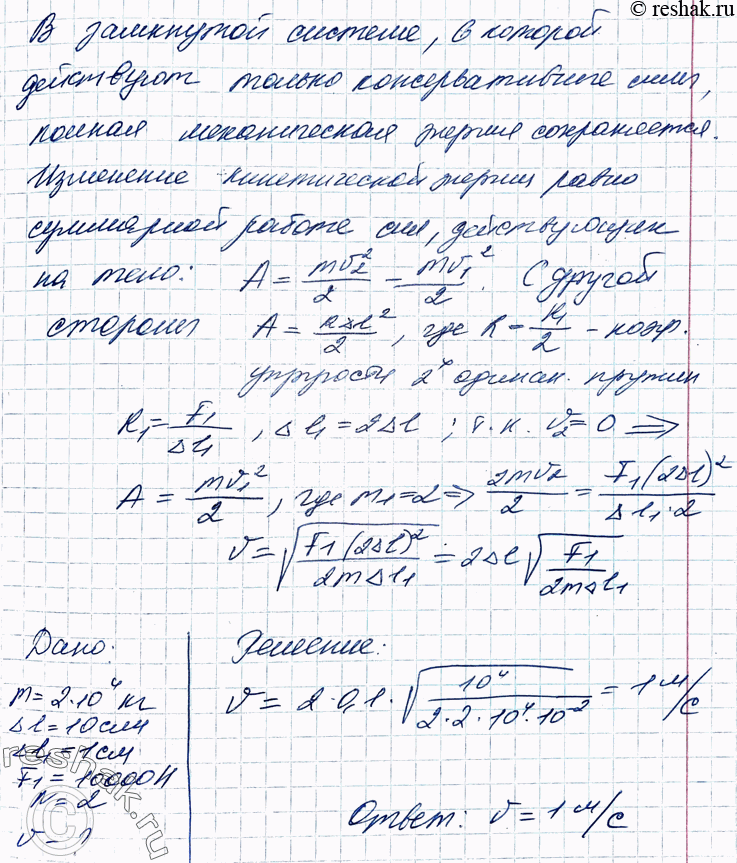 © reshak.ru
В замкнутой системе, в которой
действуют только консервативные силы,
полная механическая энергия сохраняется.
Изменение кинетической энергии равно
суммарной работе сил, действующих
на тело: A = mv₂²/2 − mv₁²/2. С другой
стороны A = kΔl²/2, где k = k₁/2 − коэф.
упругости 2ˣ одинак. пружин
k₁ = F₁/Δl₁, Δl₁ = 2Δl; т.к. v₂ = 0 ⇒
A = mv₁²/2, где m₁ = 2 ⇒ 2mv²/2 = F₁(2Δl)²/Δl₁·2
v = √(F₁(2Δl)²/2mΔl₁) = 2Δl √(F₁/2mΔl₁)
Дано:
m = 2·10⁴ кг
Δl = 10 см
Δl₁ = 1 см
F₁ = 10000 Н
N = 2
v − ?
Решение:
v = 2·0,1·√(10⁴/2·2·10⁴·10⁻²) = 1 м/с
Ответ: v = 1 м/с
© reshak.ru